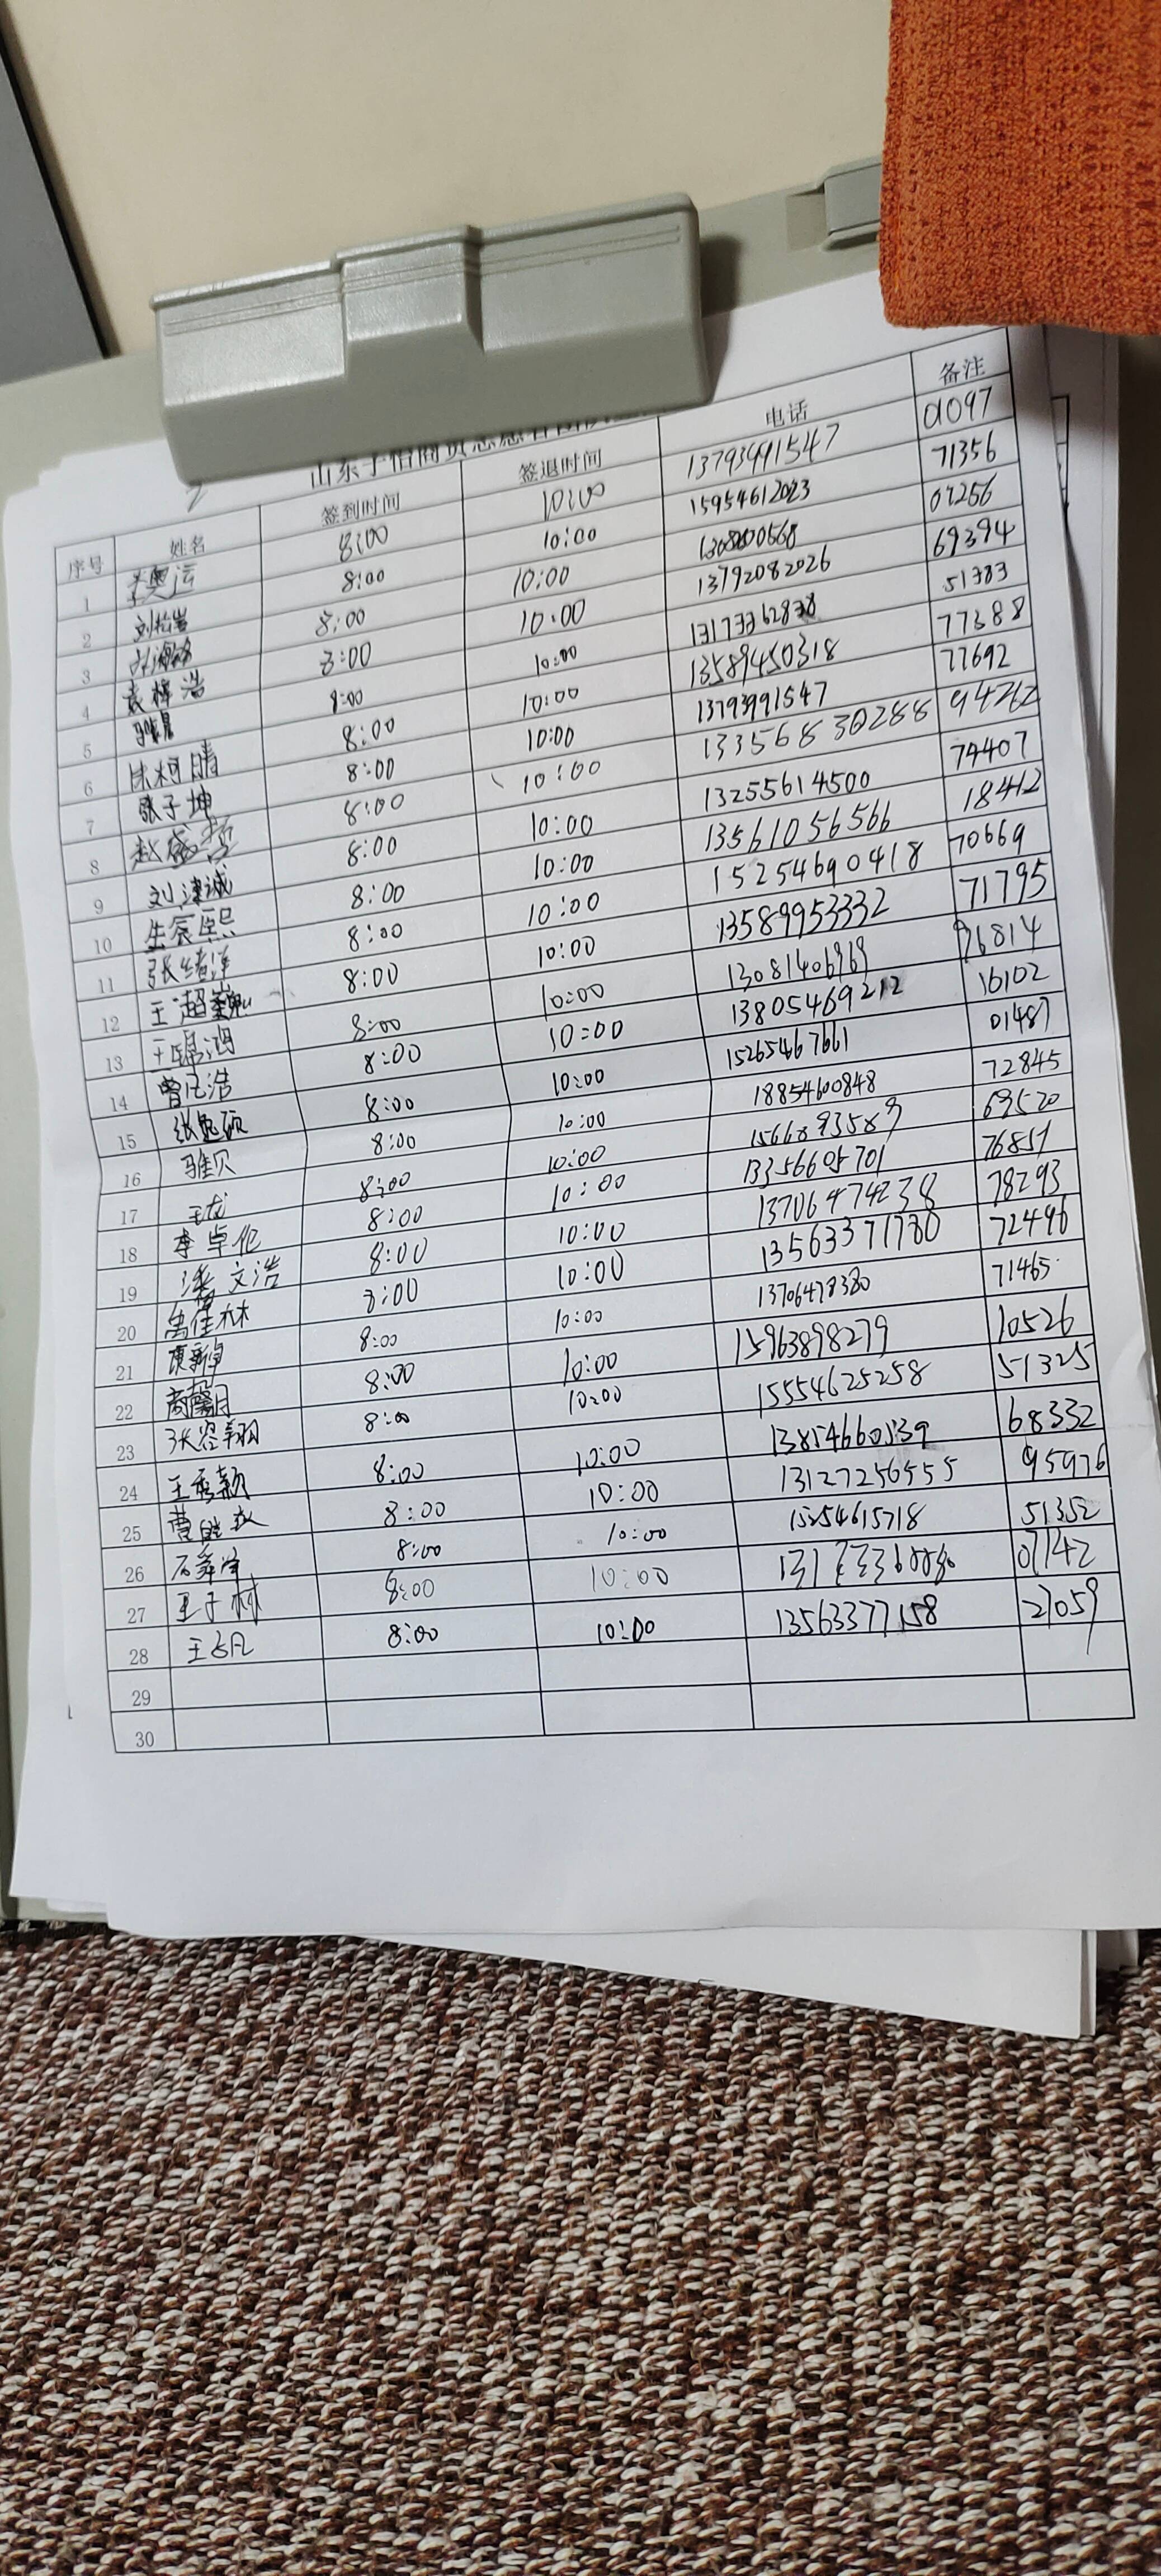 序号 姓名 签到时间 签退时间 电话 备注
1 李奥运 8:00 10:00 13793991547 01097
2 刘松岩 8:00 10:00 15954612023 71356
3 8:00 10:00 07256
4 袁梓浩 8:00 10:00 13792082026 69394
5 8:00 10:00 51383
6 陈柯晴 8:00 10:00 13589450318 77388
7 张子坤 8:00 10:00 13793991547 77692
8 赵盛哲 8:00 10:00 94262
9 刘津诚 8:00 10:00 13255614500 74407
10 生宸熙 8:00 10:00 13561056566 18412
11 张绪洋 8:00 10:00 15254690418 70669
12 王超 8:00 10:00 13589953332 71795
13 8:00 10:00 13081406969 76814
14 曾凡浩 8:00 10:00 13805469212 16102
15 8:00 10:00 15265467661 01487
16 8:00 10:00 18854600848 72845
17 王龙 8:00 10:00 1566893589 69520
18 李卓伦 8:00 10:00 13356605701 76857
19 潘文浩 8:00 10:00 13706474238 78293
20 禹佳林 8:00 10:00 13563371780 72496
21 8:00 10:00 13706478380 71465
22 商馨月 8:00 10:00 15963898279 10526
23 8:00 10:00 15554625258 51325
24 王秀颖 8:00 10:00 68332
25 8:00 10:00 13127256555 95976
26 石舜宇 8:00 10:00 51352
27 王子林 8:00 10:00 07142
28 8:00 10:00 13563377158 21059
29
30